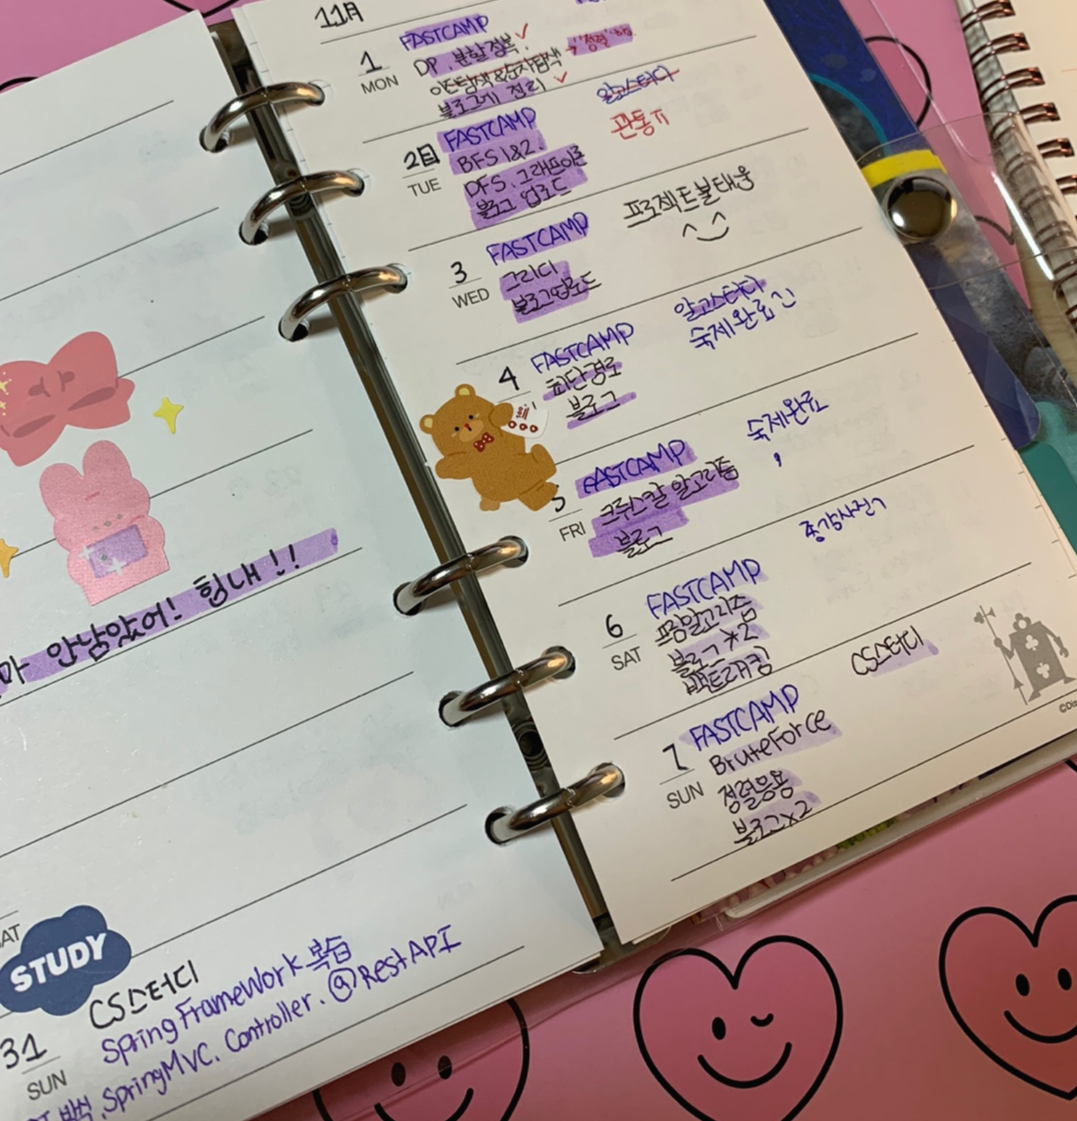 안남았어! 힘내!!
STUDY
CS스터디
31
SUN
Spring FrameWork 복습
SpringMVC. Controller. @RestAPI
11月
1
MON
FASTCAMP
DP. 분할정복.
이진탐색&순차탐색
블로그에 정리
2日
TUE
FASTCAMP
BFS 1&2.
DFS. 그래프이론
블로그 업로드
알고스터디
관통 π
3
WED
FASTCAMP
그리디
블로그업로드
프로젝트 불태웅
4
FASTCAMP
최단경로
블로그
알고스터디
숙제완료긴
5
FRI
FASTCAMP
크루스칼 알고리즘
블로그
숙제완료
6
SAT
FASTCAMP
프림알고리즘
블로그*2
백트래킹
종강사진기
7
SUN
FASTCAMP
BruteForce
정렬응용
블로그x2
CS스터디
©Dis